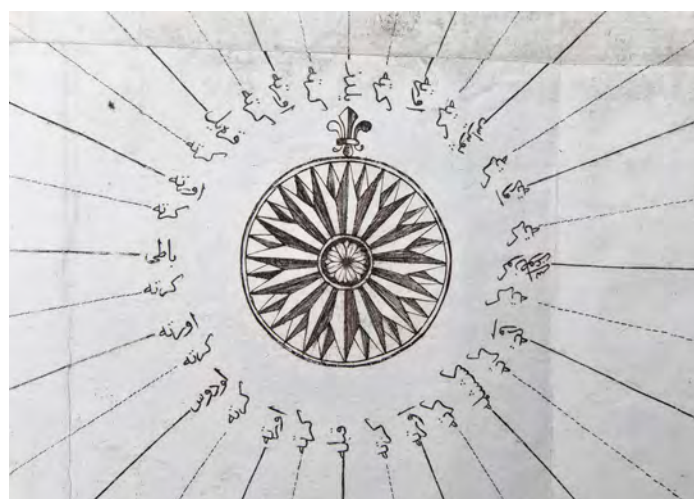 كرته
اورته
كرته
كرته
اورته
كرته
كرته
اورته
كرته
كرته
اورته
كرته
قبله
كرته
اورته
كرته
لودوس
كرته
اورته
كرته
باطی
كرته
اورته
كرته
قره يل
كرته
اورته
كرته